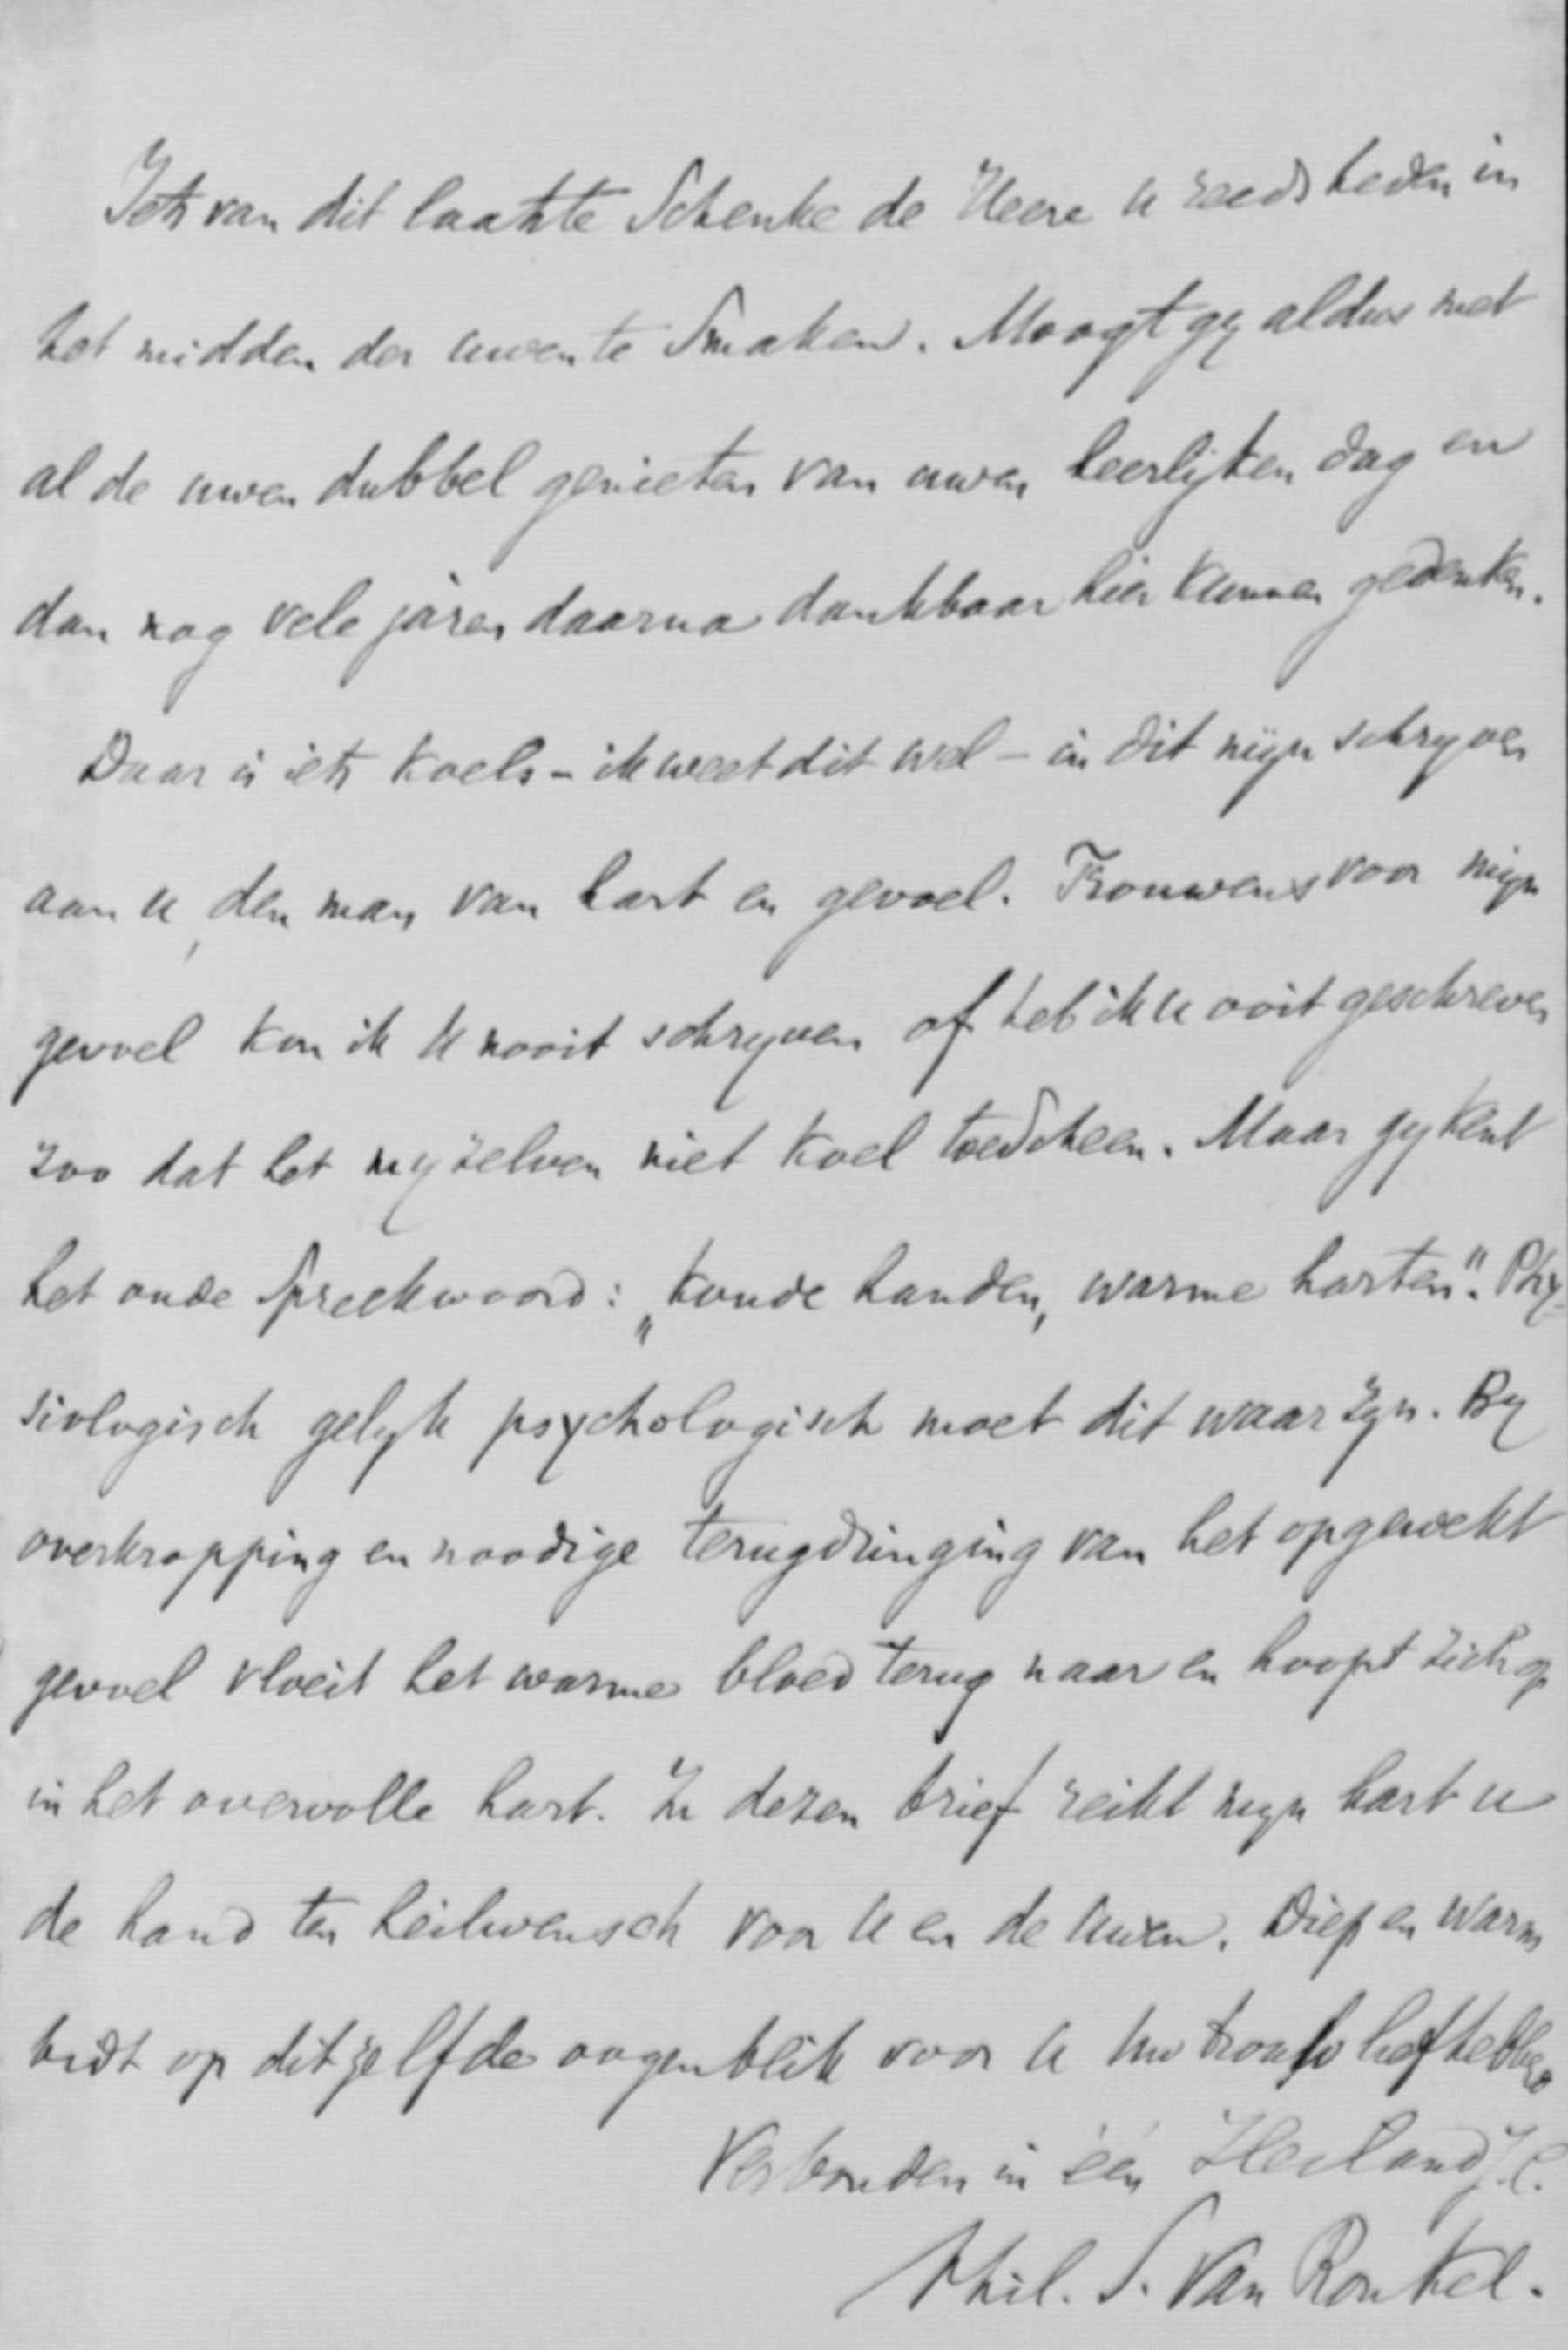 Iets van dit laatste schenke de Heere u reeds heden in
het midden der uwen te smaken. Moogt gy aldus met
al de uwen dubbel genieten van uwen heerlyken dag en
dan nog vele jaren daarna dankbaar hier kunnen gedenken.
Daar is iets koels – ik weet dit wel – in dit myn schryven
aan u, den man van hart en gevoel. Trouwens voor myn
gevoel kon ik u nooit schryven of heb ik u ooit geschreven
zoo dat het my zelven niet koel toescheen. Maar gy kent
het oude spreekwoord: „koude handen, warme harten”. Phy-
siologisch gelyk psychologisch moet dit waar zyn. By
overkropping en noodige terugdringing van het opgewekt
gevoel vloeit het warme bloed terug naar en hoopt zich op
in het overvolle hart. In dezen brief reikt myn hart u
de hand ten heilwensch voor u en de uwen. Diep en warm
bidt op ditzelfde oogenblik voor u uw liefhebbende
Verbonden in één Heiland J.C.
Phil. S. van Ronkel.